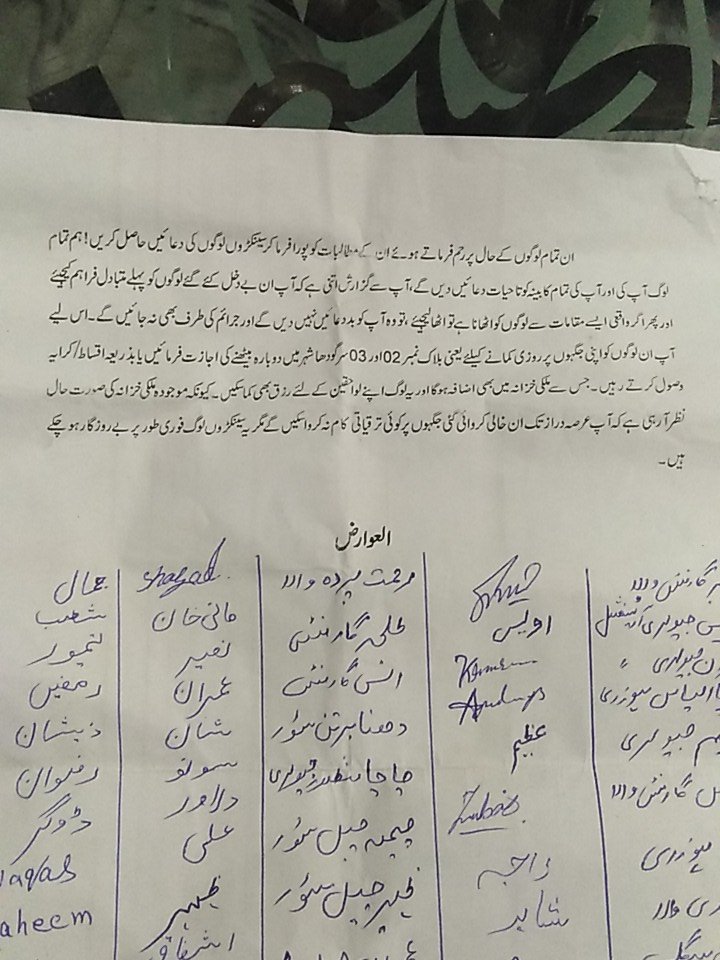 ان تمام لوگوں کے حال پر رحم فرماتے ہوئے ان کے مطالبات کو پورا فرما کر سینکڑوں لوگوں کی دعائیں حاصل کریں! ہم تمام
لوگ آپ کی اور آپ کی تمام کابینہ کو تاحیات دعائیں دیں گے، آپ سے گزارش اتنی ہے کہ آپ ان بے دخل کئے گئے لوگوں کو پہلے متبادل فراہم کیجئے
اور پھر اگر واقعی ایسے مقامات سے لوگوں کو اٹھانا ہے تو اٹھا لیجئے، تو وہ آپ کو بددعائیں نہیں دیں گے اور جرائم کی طرف بھی نہ جائیں گے۔ اس لیے
آپ ان لوگوں کو اپنی جگہوں پر روزی کمانے کیلئے یعنی بلاک نمبر 02 اور 03 سرگودھا شہر میں دوبارہ بیٹھنے کی اجازت فرمائیں یا بذریعہ اقساط/کرایہ
وصول کرتے رہیں۔ جس سے ملکی خزانہ میں بھی اضافہ ہوگا اور یہ لوگ اپنے لواحقین کے لئے رزق بھی کما سکیں۔ کیونکہ موجودہ ملکی خزانہ کی صورت حال
نظر آ رہی ہے کہ آپ عرصہ دراز تک ان خالی کروائی گئی جگہوں پر کوئی ترقیاتی کام نہ کروا سکیں گے مگر یہ سینکڑوں لوگ فوری طور پر بے روزگار ہو چکے
ہیں۔
العوارض
گارمنٹس والا رحمت پردہ والا shazad جمال
جیولری اویس علی گارمنٹس مانی خان شعیب
جیولری انس گارمنٹس نصیر تیمور
عمران
جیولری عظیم برتن سٹور شان ذیشان
چاچا جیولری سونو رضوان
گارمنٹس والا Zubair چیمہ چپل سٹور دلاور ڈوگر
راجہ علی
شاہد چپل سٹور ظہیر aheem
اشفاق